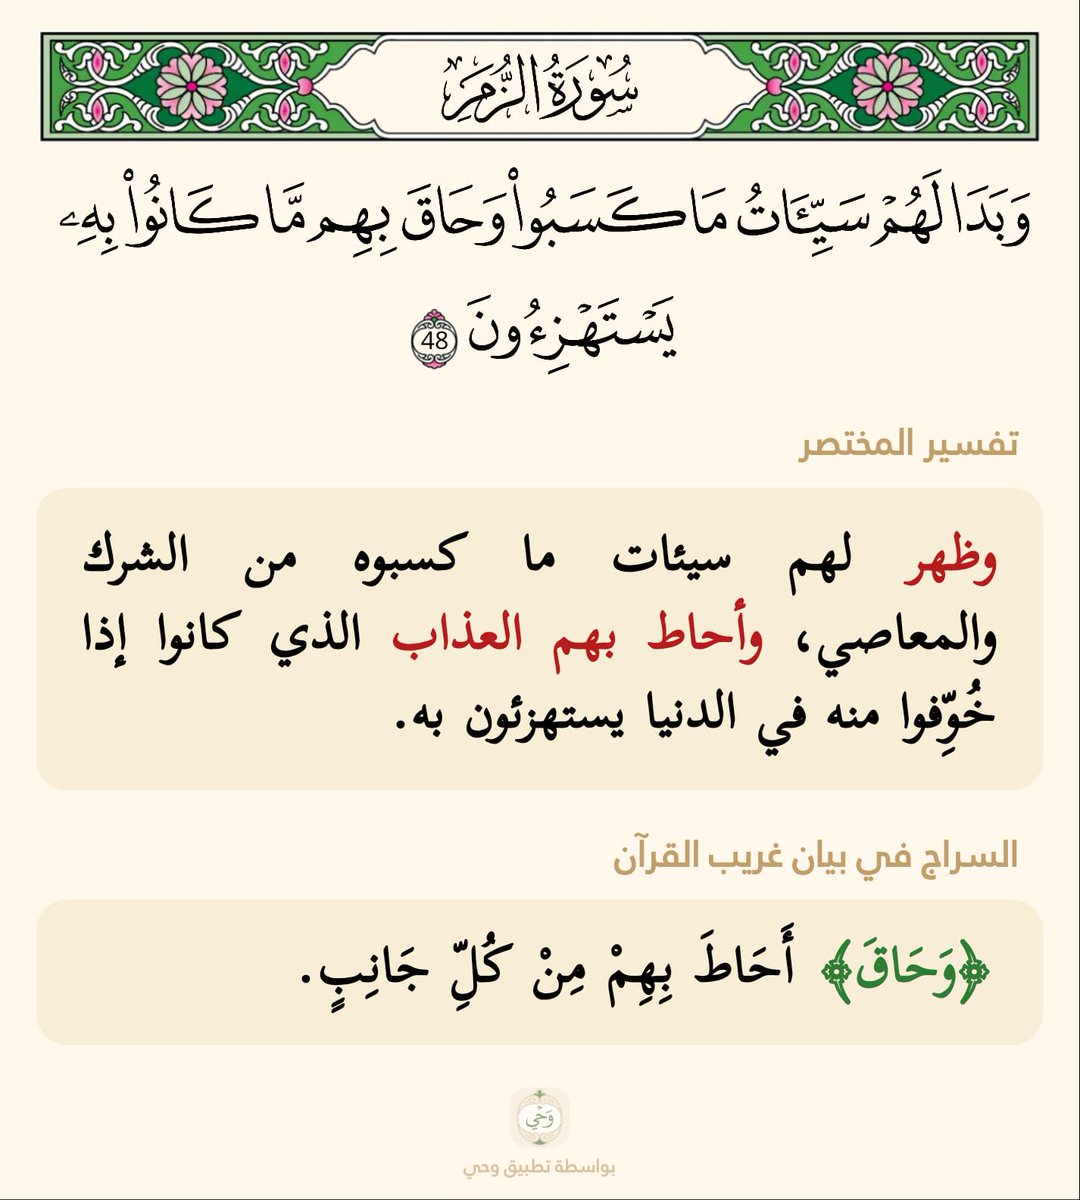 سُورَةُ الزُّمَرِ
وَبَدَا لَهُمۡ سَيِّـَٔاتُ مَا كَسَبُواْ وَحَاقَ بِهِم مَّا كَانُواْ بِهِۦ
يَسۡتَهۡزِءُونَ 48
تفسير المختصر
وظهر لهم سيئات ما كسبوه من الشرك
والمعاصي، وأحاط بهم العذاب الذي كانوا إذا
خُوِّفوا منه في الدنيا يستهزئون به.
السراج في بيان غريب القرآن
﴿وَحَاقَ﴾ أَحَاطَ بِهِمْ مِنْ كُلِّ جَانِبٍ.
وَحْي
بواسطة تطبيق وحي